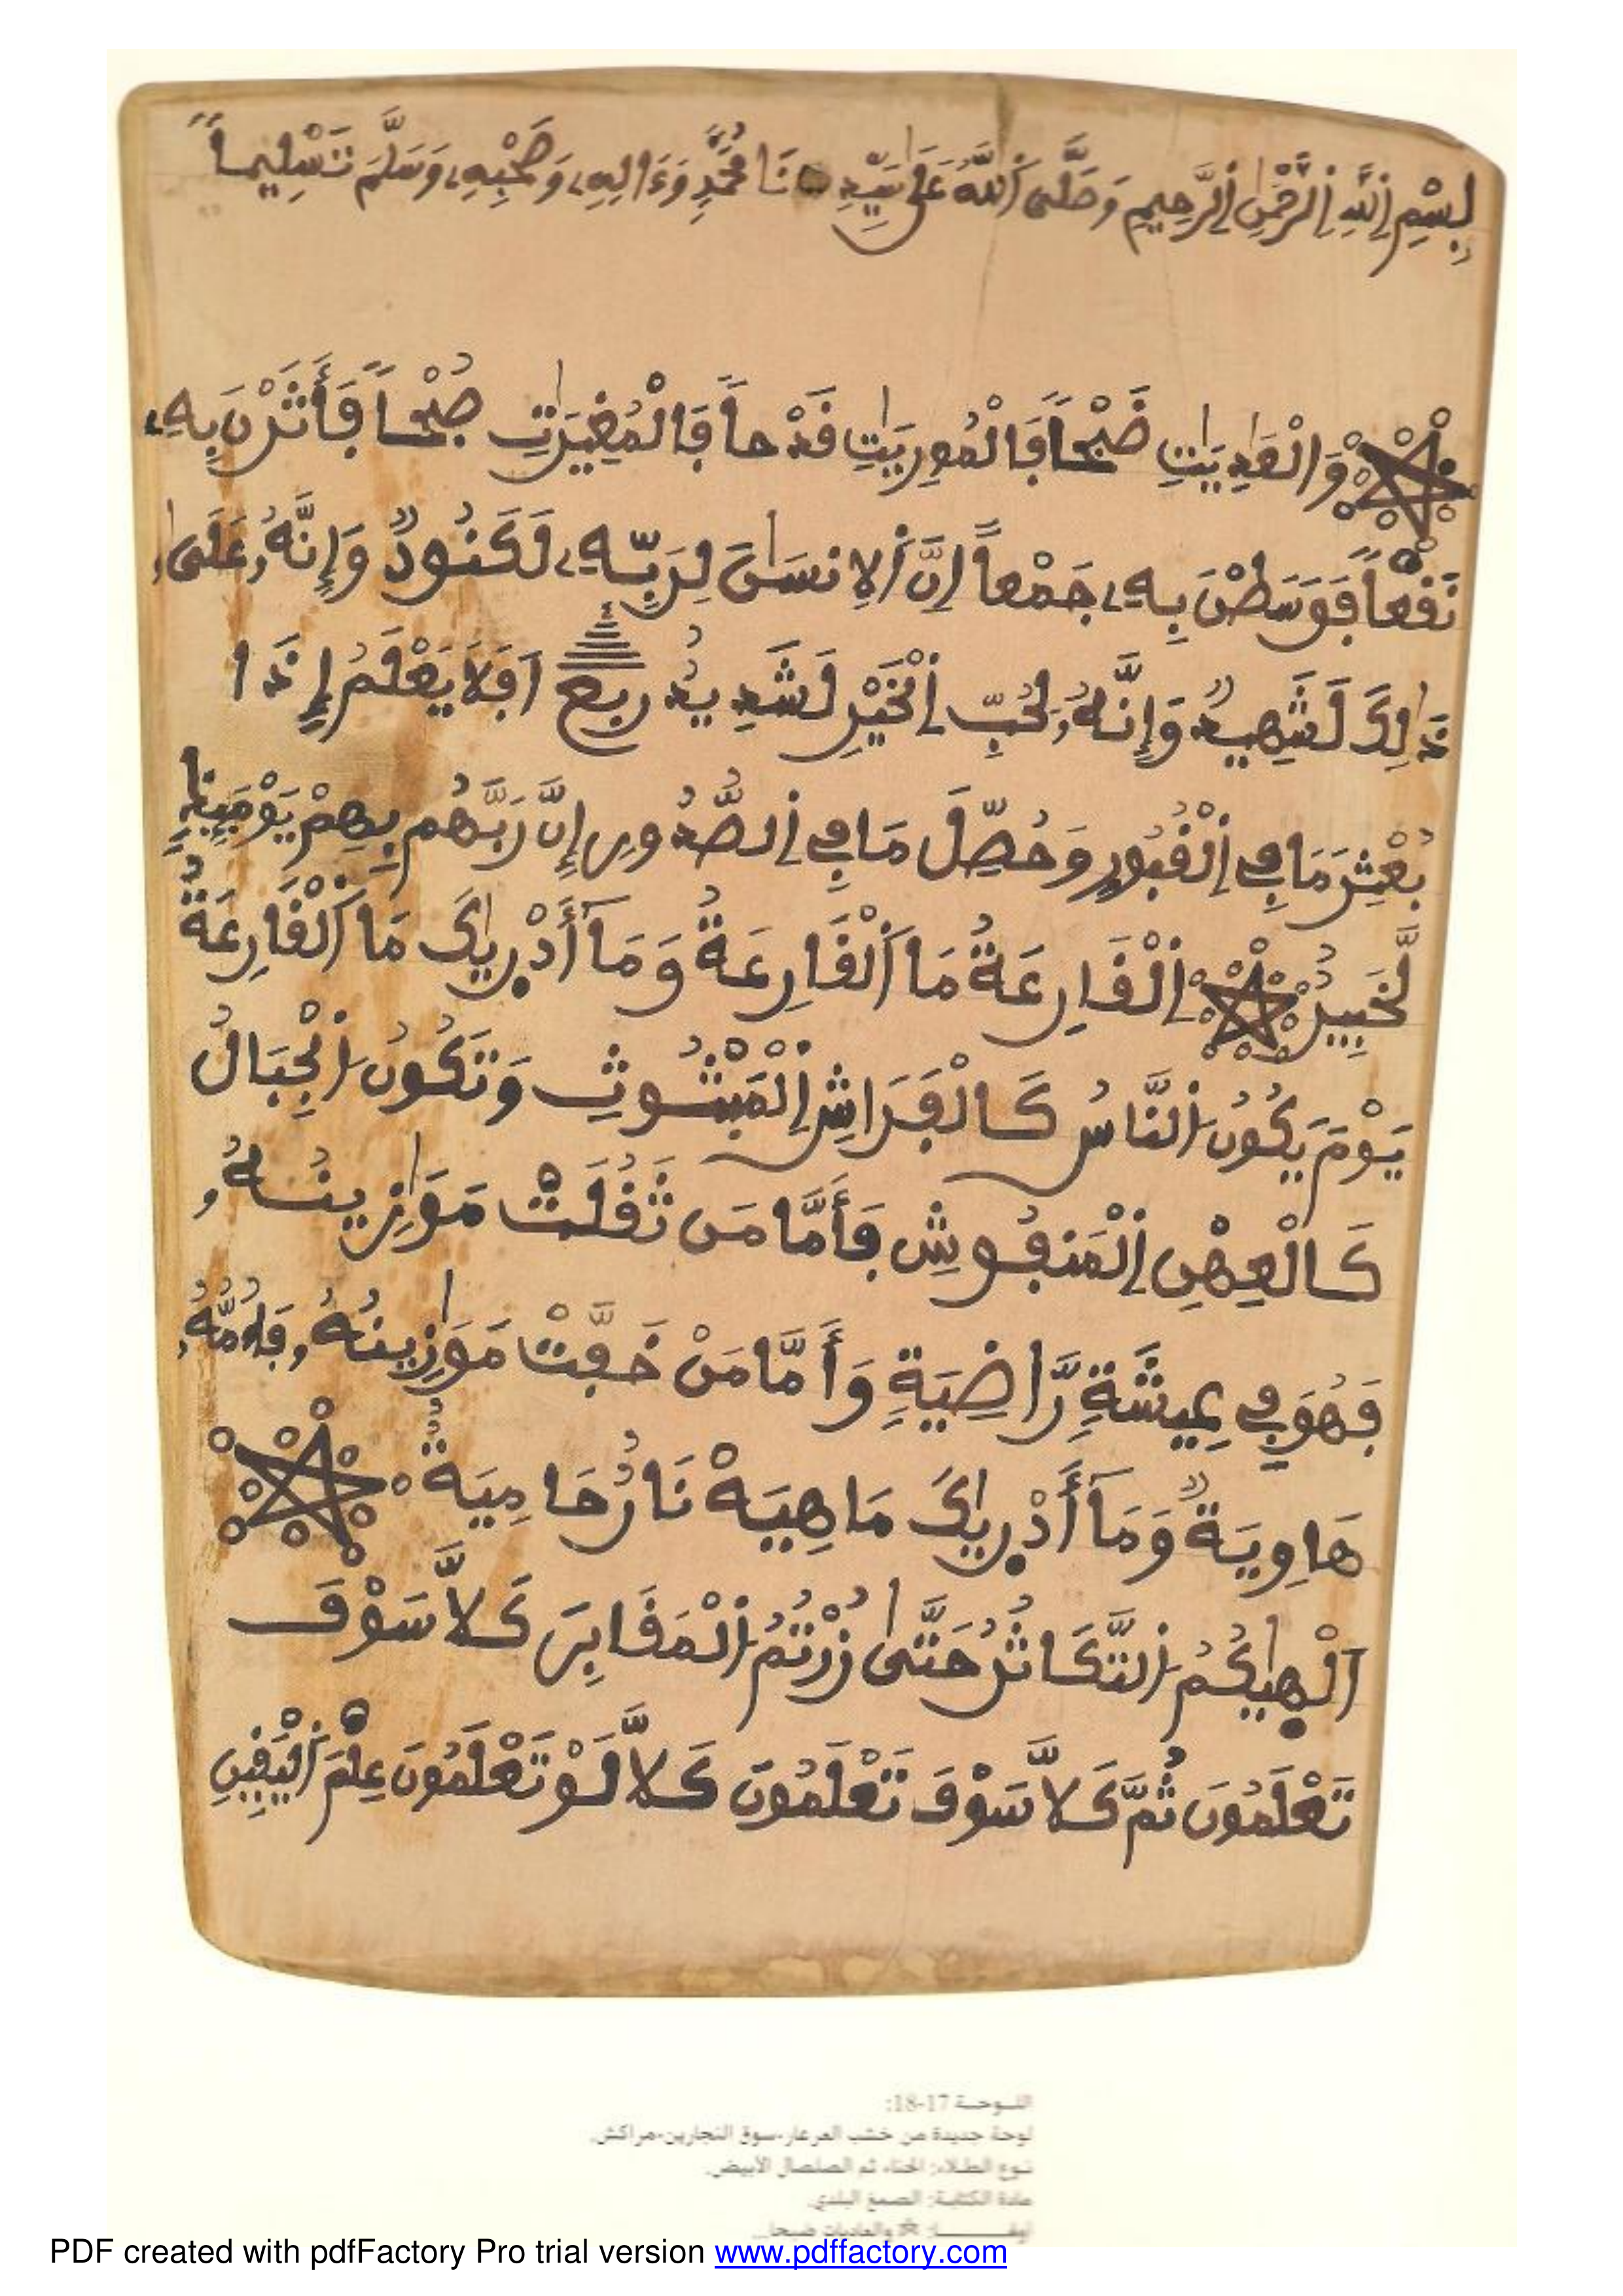 بِسْمِ اِللَّهِ اِلرَّحْمَٰنِ اِلرَّحِيمِ وَصَلَّى اَللَّهُ عَلَىٰ سَيِّدِنَا مُحَمَّدٍ وَءَالِهِۦ وَصَحْبِهِۦ وَسَلَّمَ تَسْلِيماً
وَالْعَٰدِيَٰتِ ضَبْحاً فَالْمُورِيَٰتِ قَدْحاً فَالْمُغِيرَٰتِ صُبْحاً فَأَثَرْنَ بِهِۦ
نَقْعاً فَوَسَطْنَ بِهِۦ جَمْعاً اِنَّ اَلِانسَٰنَ لِرَبِّهِۦ لَكَنُودٌ وَإِنَّهُۥ عَلَىٰ
ذَٰلِكَ لَشَهِيدٌ وَإِنَّهُۥ لِحُبِّ اِلْخَيْرِ لَشَدِيدٌ ربع اَفَلَا يَعْلَمُ إِذَا
بُعْثِرَ مَا فِي اِلْقُبُورِ وَحُصِّلَ مَا فِي اِلصُّدُورِ إِنَّ رَبَّهُم بِهِمْ يَوْمَئِذٍ
لَّخَبِيرٌ اِلْقَارِعَةُ مَا اَلْقَارِعَةُ وَمَآ أَدْرِيٰكَ مَا اَلْقَارِعَةُ
يَوْمَ يَكُونُ اُلنَّاسُ كَالْفَرَاشِ اِلْمَبْثُوثِ وَتَكُونُ اُلْجِبَالُ
كَالْعِهْنِ اِلْمَنفُوشِ فَأَمَّا مَن ثَقُلَتْ مَوَٰزِينُهُۥ
فَهُوَ فِي عِيشَةٍ رَّاضِيَةٍ وَأَمَّا مَنْ خَفَّتْ مَوَٰزِينُهُۥ فَأُمُّهُۥ
هَاوِيَةٌ وَمَآ أَدْرِيٰكَ مَاهِيَهْ نَارٌ حَامِيَةٌ
اَلْهِيٰكُمُ اُلتَّكَاثُرُ حَتَّىٰ زُرْتُمُ اُلْمَقَابِرَ كَلَّا سَوْفَ
تَعْلَمُونَ ثُمَّ كَلَّا سَوْفَ تَعْلَمُونَ كَلَّا لَوْ تَعْلَمُونَ عِلْمَ اَلْيَقِينِ
اللوحة 17-18:
لوحة جديدة من خشب العرعار-سوق النجارين-مراكش.
نوع الطلاء: الحناء ثم الصلصال الأبيض.
مادة الكتابة: الصمغ البلدي.
والعاديات ضبحا...
PDF created with pdfFactory Pro trial version www.pdffactory.com